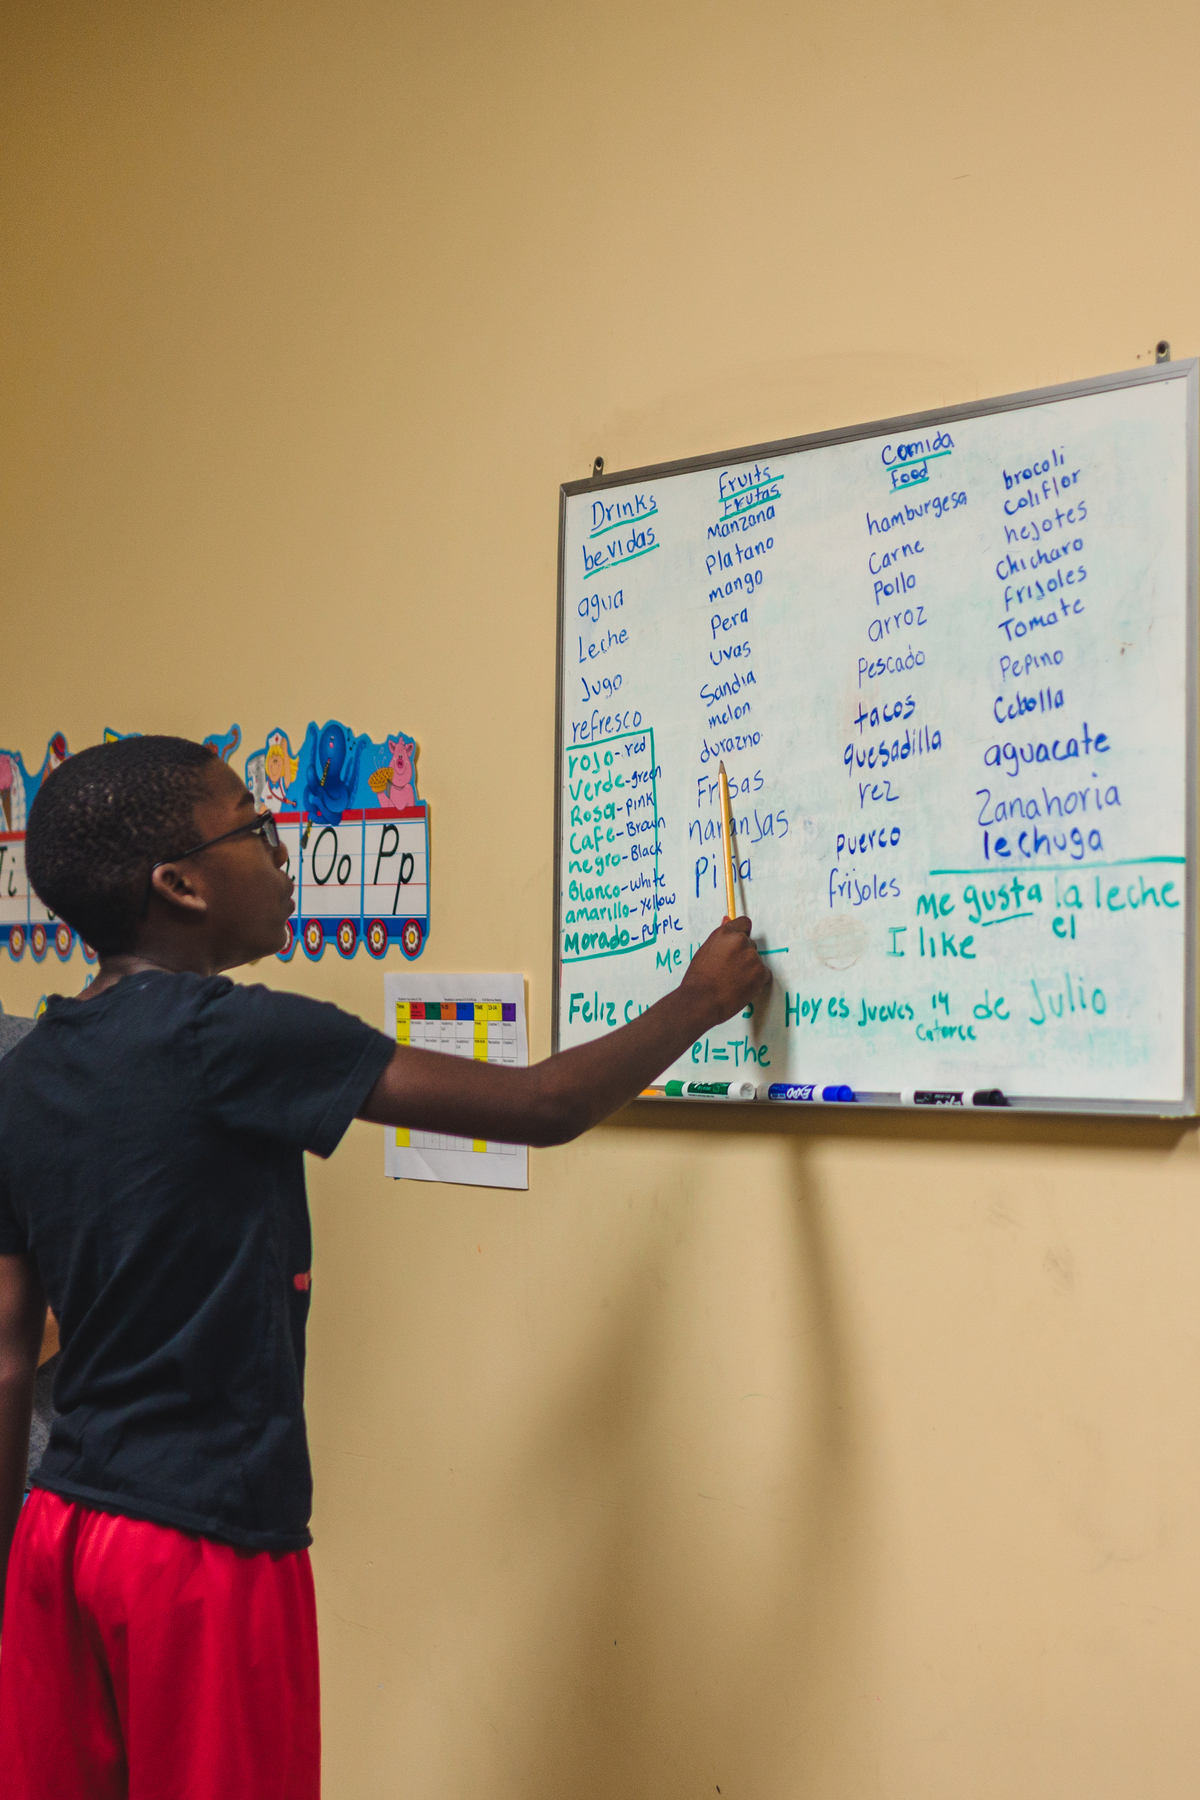 Drinks
bevidas
agua
Leche
Jugo
refresco
rojo-red
Verde-green
Rosa-pink
Cafe-Brown
negro-Black
Blanco-white
amarillo-Yellow
Morado-purple
Fruits
Frutas
Manzana
Platano
mango
Pera
uvas
Sandia
melon
durazno
naranjas
Piña
Comida
Food
hamburgesa
Carne
Pollo
arroz
Pescado
tacos
quesadilla
rez
puerco
frijoles
brocoli
coliflor
hejotes
chicharo
frijoles
Tomate
Pepino
Cebolla
aguacate
Zanahoria
lechuga
Me gusta la leche
el
I like
Me
Feliz
Hoy es Jueves 14 de Julio
Catorce
el=The
EXPO
Oo
Pp